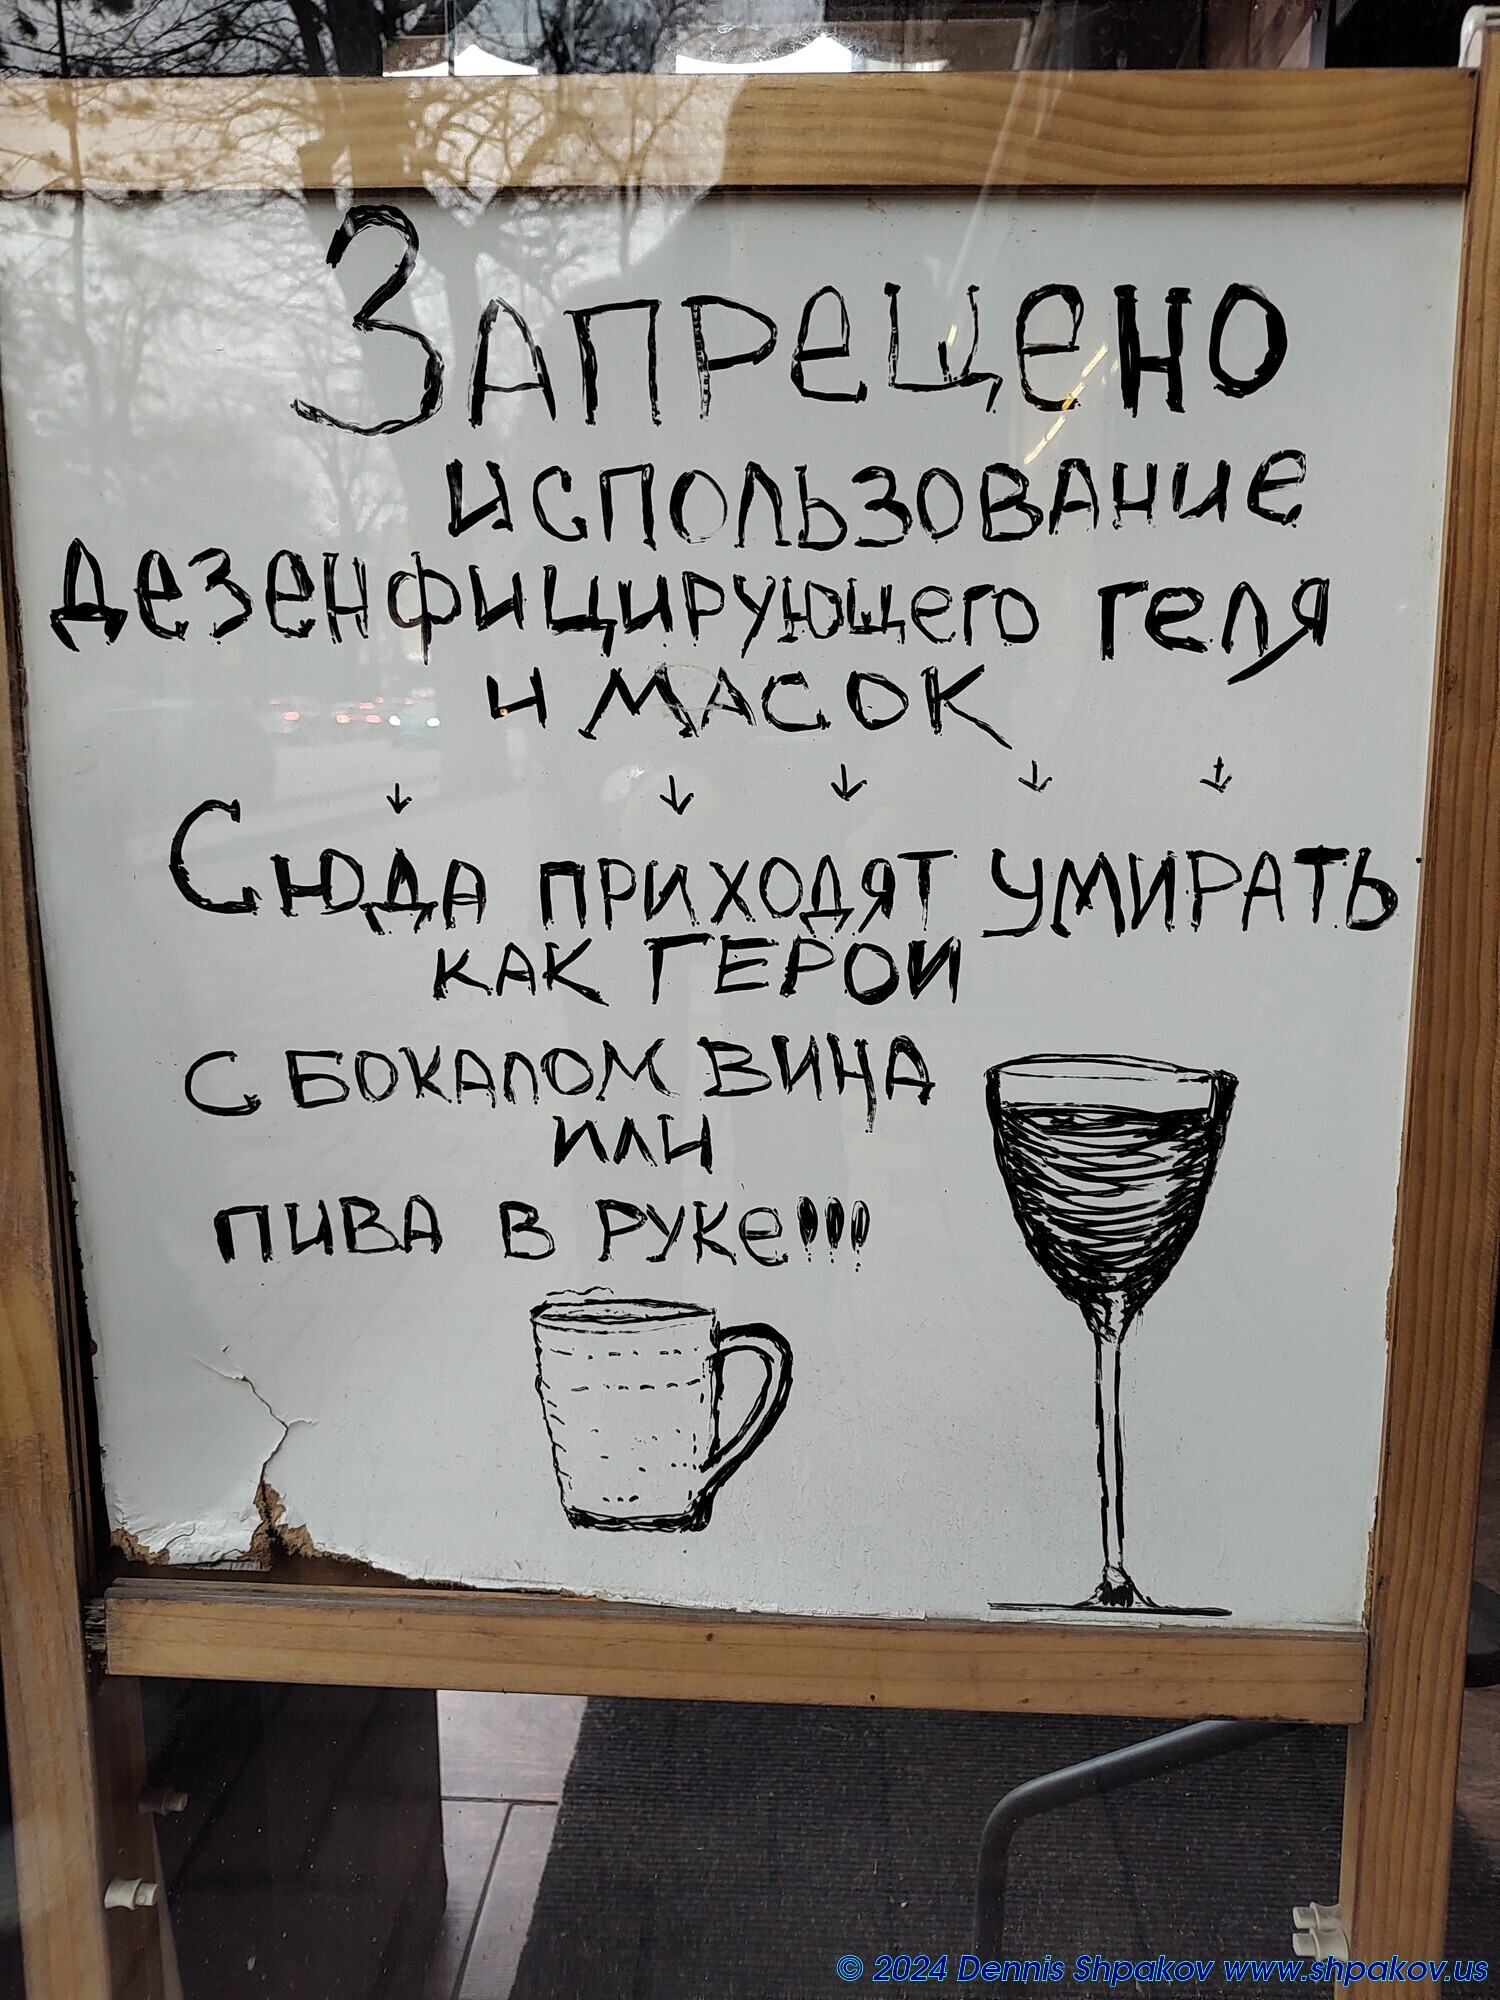 Запрещено
использование
дезенфицирующего геля
и масок
↓ ↓ ↓ ↓ ↓
Сюда приходят умирать
как герои
с бокалом вина
или
пива в руке!!!
© 2024 Dennis Shpakov www.shpakov.us